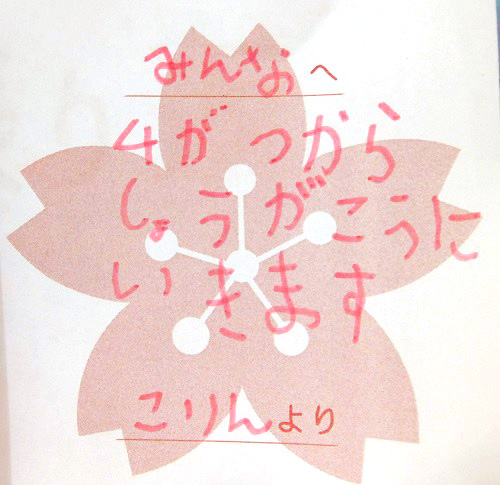 みんなへ
4がつから
しょうがこうに
いきます
こりんより